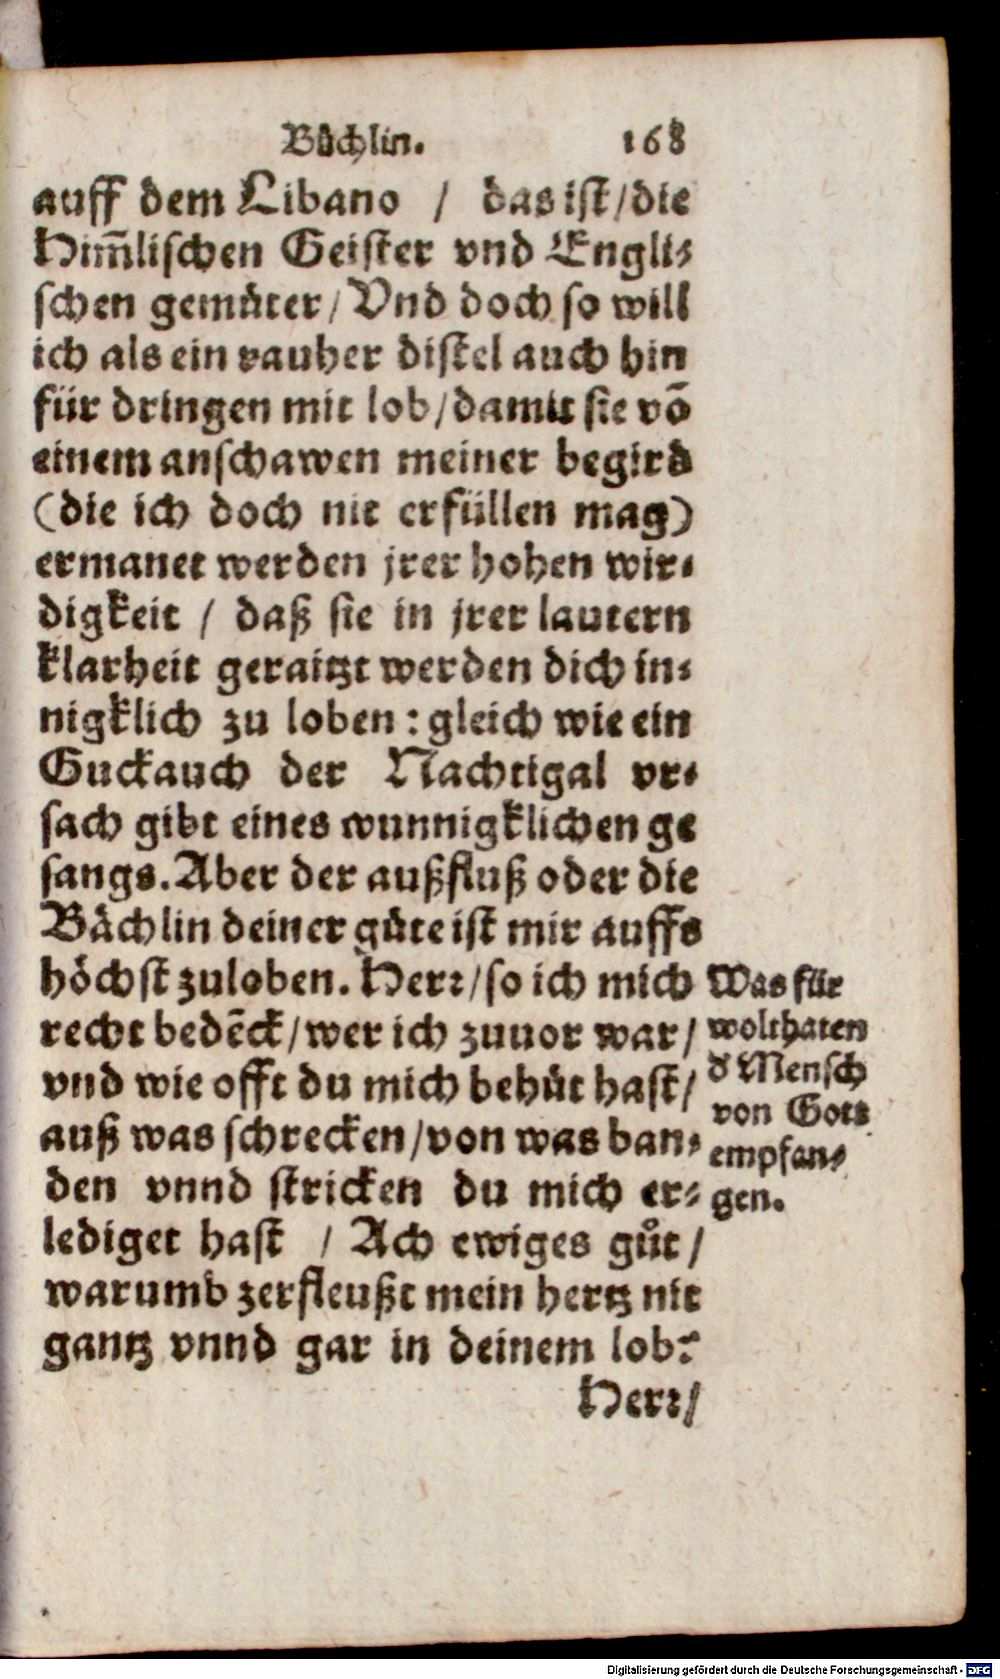 Bůchlin. 168
auff dem Libano / das ist/die
Him̃lischen Geister vnd Engli-
schen gemůter/Vnd doch so will
ich als ein rauher distel auch hin
für dringen mit lob/damit sie võ
einem anschawen meiner begird
(die ich doch nit erfüllen mag)
ermanet werden jrer hohen wir-
digkeit / daß sie in jrer lautern
klarheit geraitzt werden dich in-
nigklich zu loben: gleich wie ein
Guckauch der Nachtigal vr-
sach gibt eines wunnigklichen ge
sangs. Aber der außfluß oder die
Bächlin deiner gůte ist mir auffs
höchst zuloben. Herr/so ich mich
recht bedẽck/wer ich zuuor war/
vnd wie offt du mich behůt hast/
auß was schrecken/von was ban-
den vnnd stricken du mich er-
lediget hast / Ach ewiges gůt/
warumb zerfleußt mein hertz nit
gantz vnnd gar in deinem lob?
Herr/
Was für
wolthaten
d Mensch
von Gott
empfan-
gen.
Digitalisierung gefördert durch die Deutsche Forschungsgemeinschaft - DFG